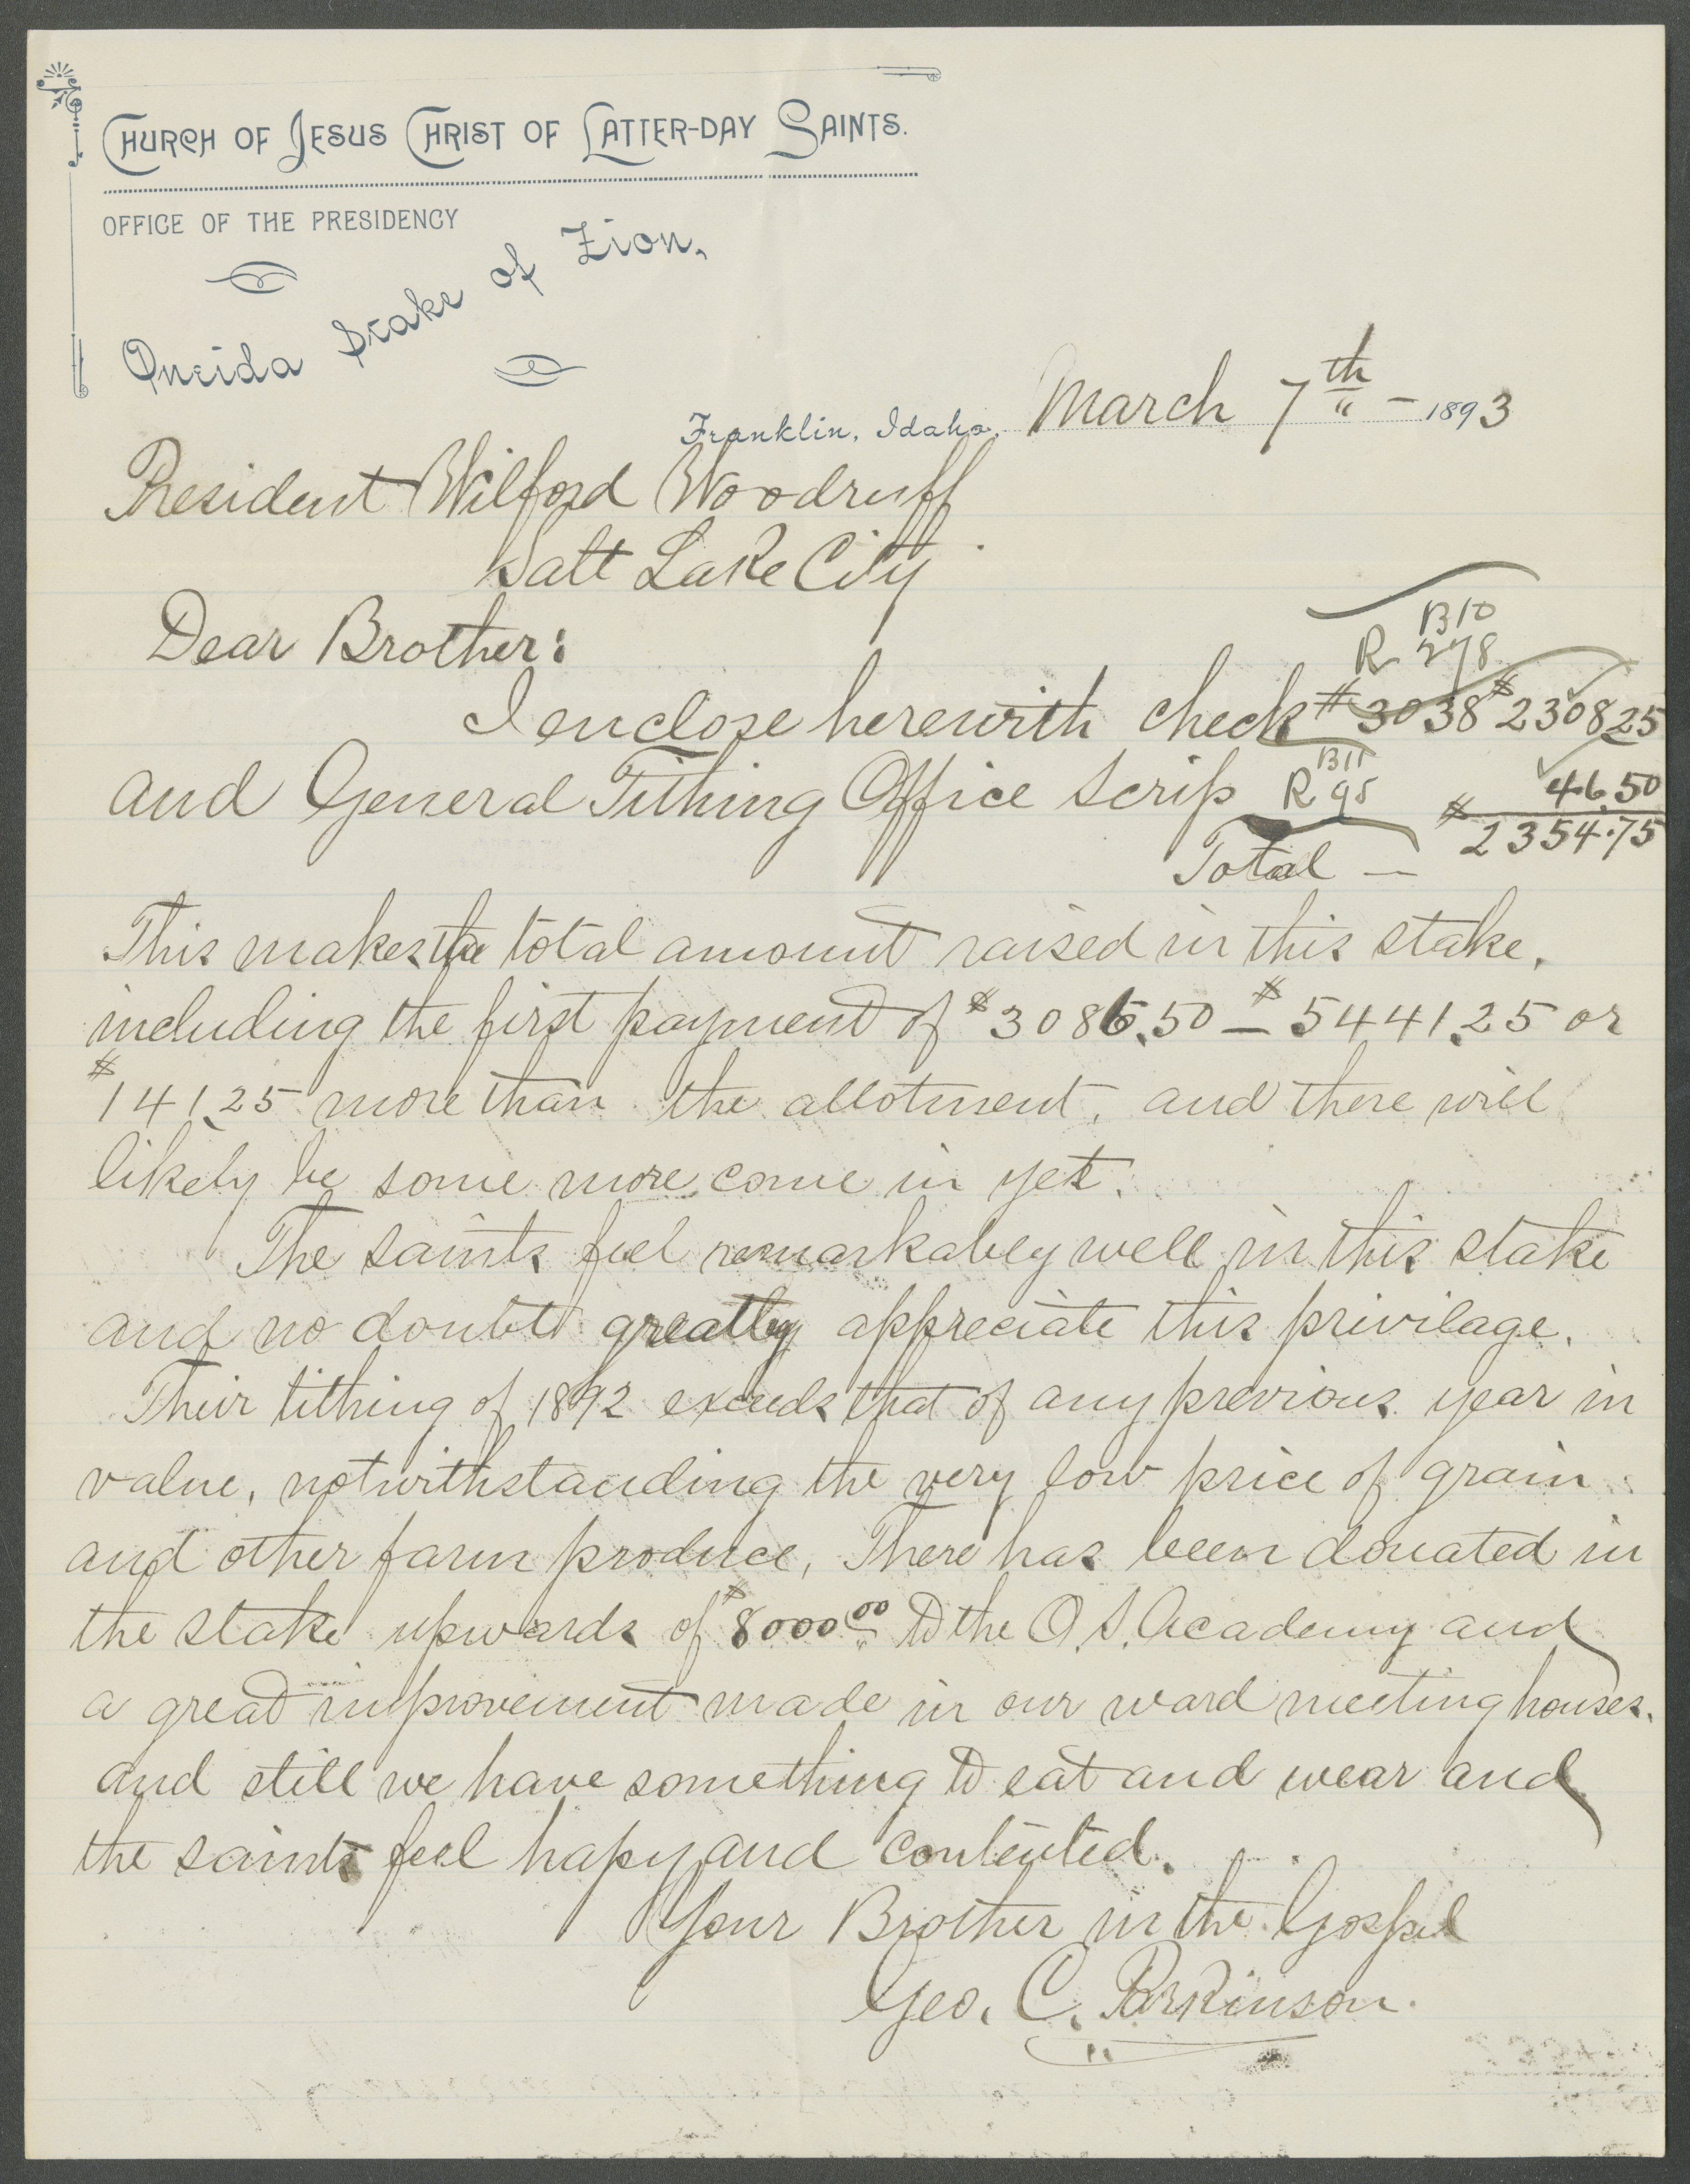 CHURCH OF JESUS CHRIST OF LATTER-DAY SAINTS.
OFFICE OF THE PRESIDENCY
Oneida Stake of Zion,
Franklin, Idaho, March 7th - 1893
President Wilford Woodruff
Salt Lake City.
Dear Brother:
B10
R 278
I enclose herewith check #3038 $2308.25
B11
and General Tithing Office Scrip R 95 46.50
Total — $2354.75
This makes the total amount raised in this stake,
including the first payment of $3086.50 — $5441.25 or
$141.25 more than the allotment, and there will
likely be some more come in yet.
The saints feel remarkabley well in this stake
and no doubt greatly appreciate this privilage.
Their tithing of 1892 exceeds that of any previous year in
value, notwithstanding the very low price of grain
and other farm produce, There has been donated in
the stake upwards of $8000.00 to the O. S. Academy and
a great improvement made in our ward meeting houses.
and still we have something to eat and wear and
the saints feel hapy and contented.
Your Brother in the Gospel
Geo. C. Parkinson.